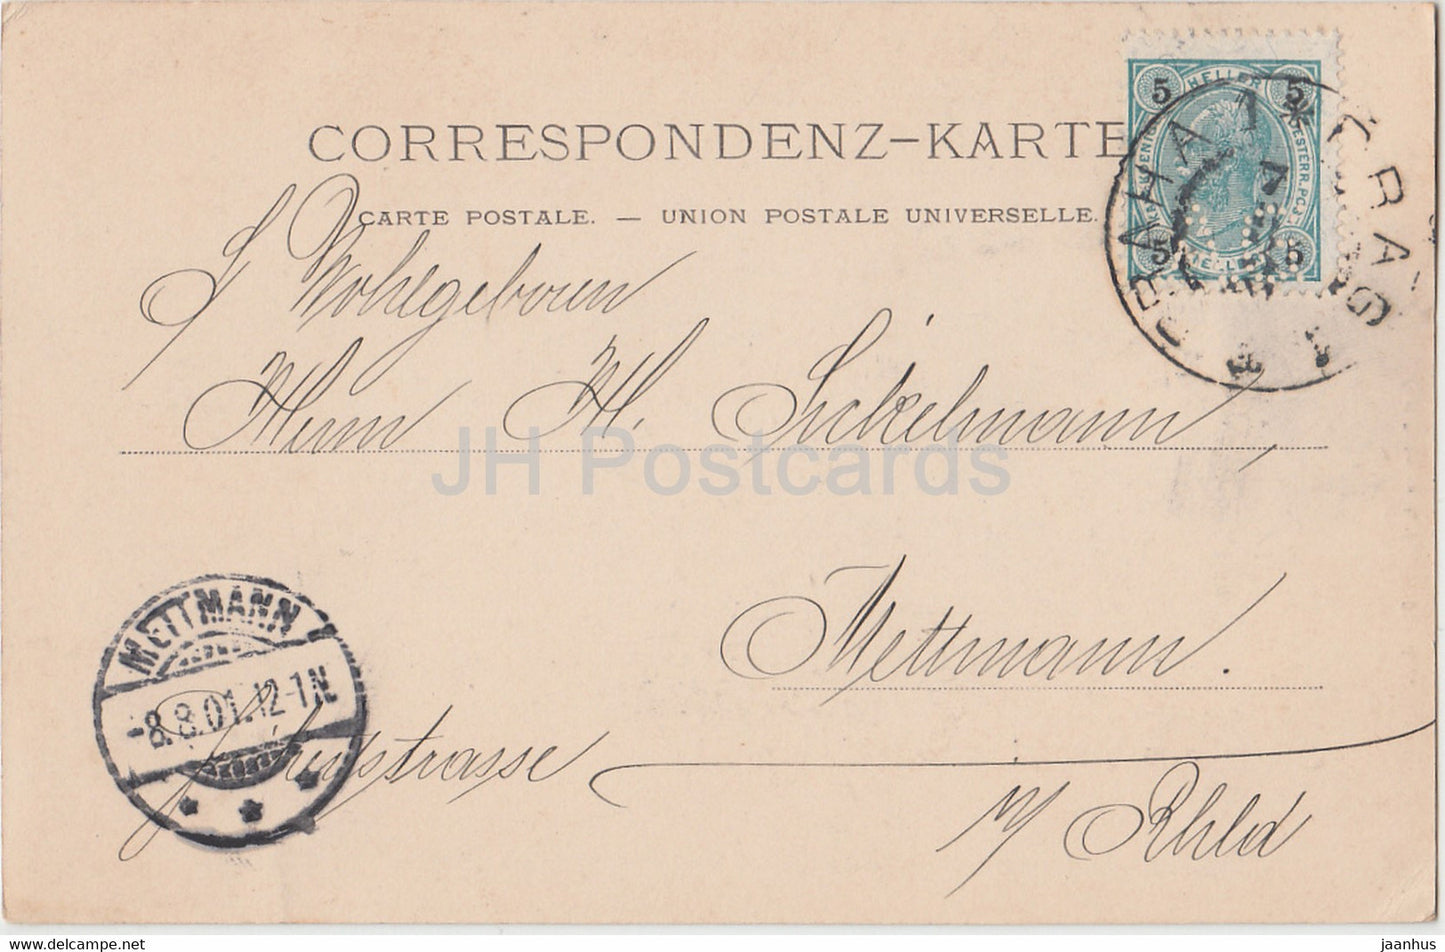 CORRESPONDENZ-KARTE
CARTE POSTALE. — UNION POSTALE UNIVERSELLE.
5 HELLER 5
5 HELLER 5
PRAHA 1 * PRAG 1
Wohlgeboren
Herrn H. Sickelmann
JH Postcards
Mettmann.
METTMANN
-8.8.01.12-1N.
strasse
Rhld
delcampe.net
jaanhus